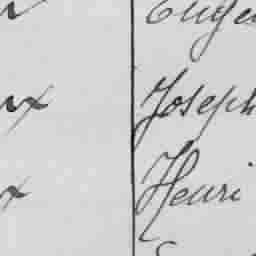 Eugen
ux Joseph
x Henri